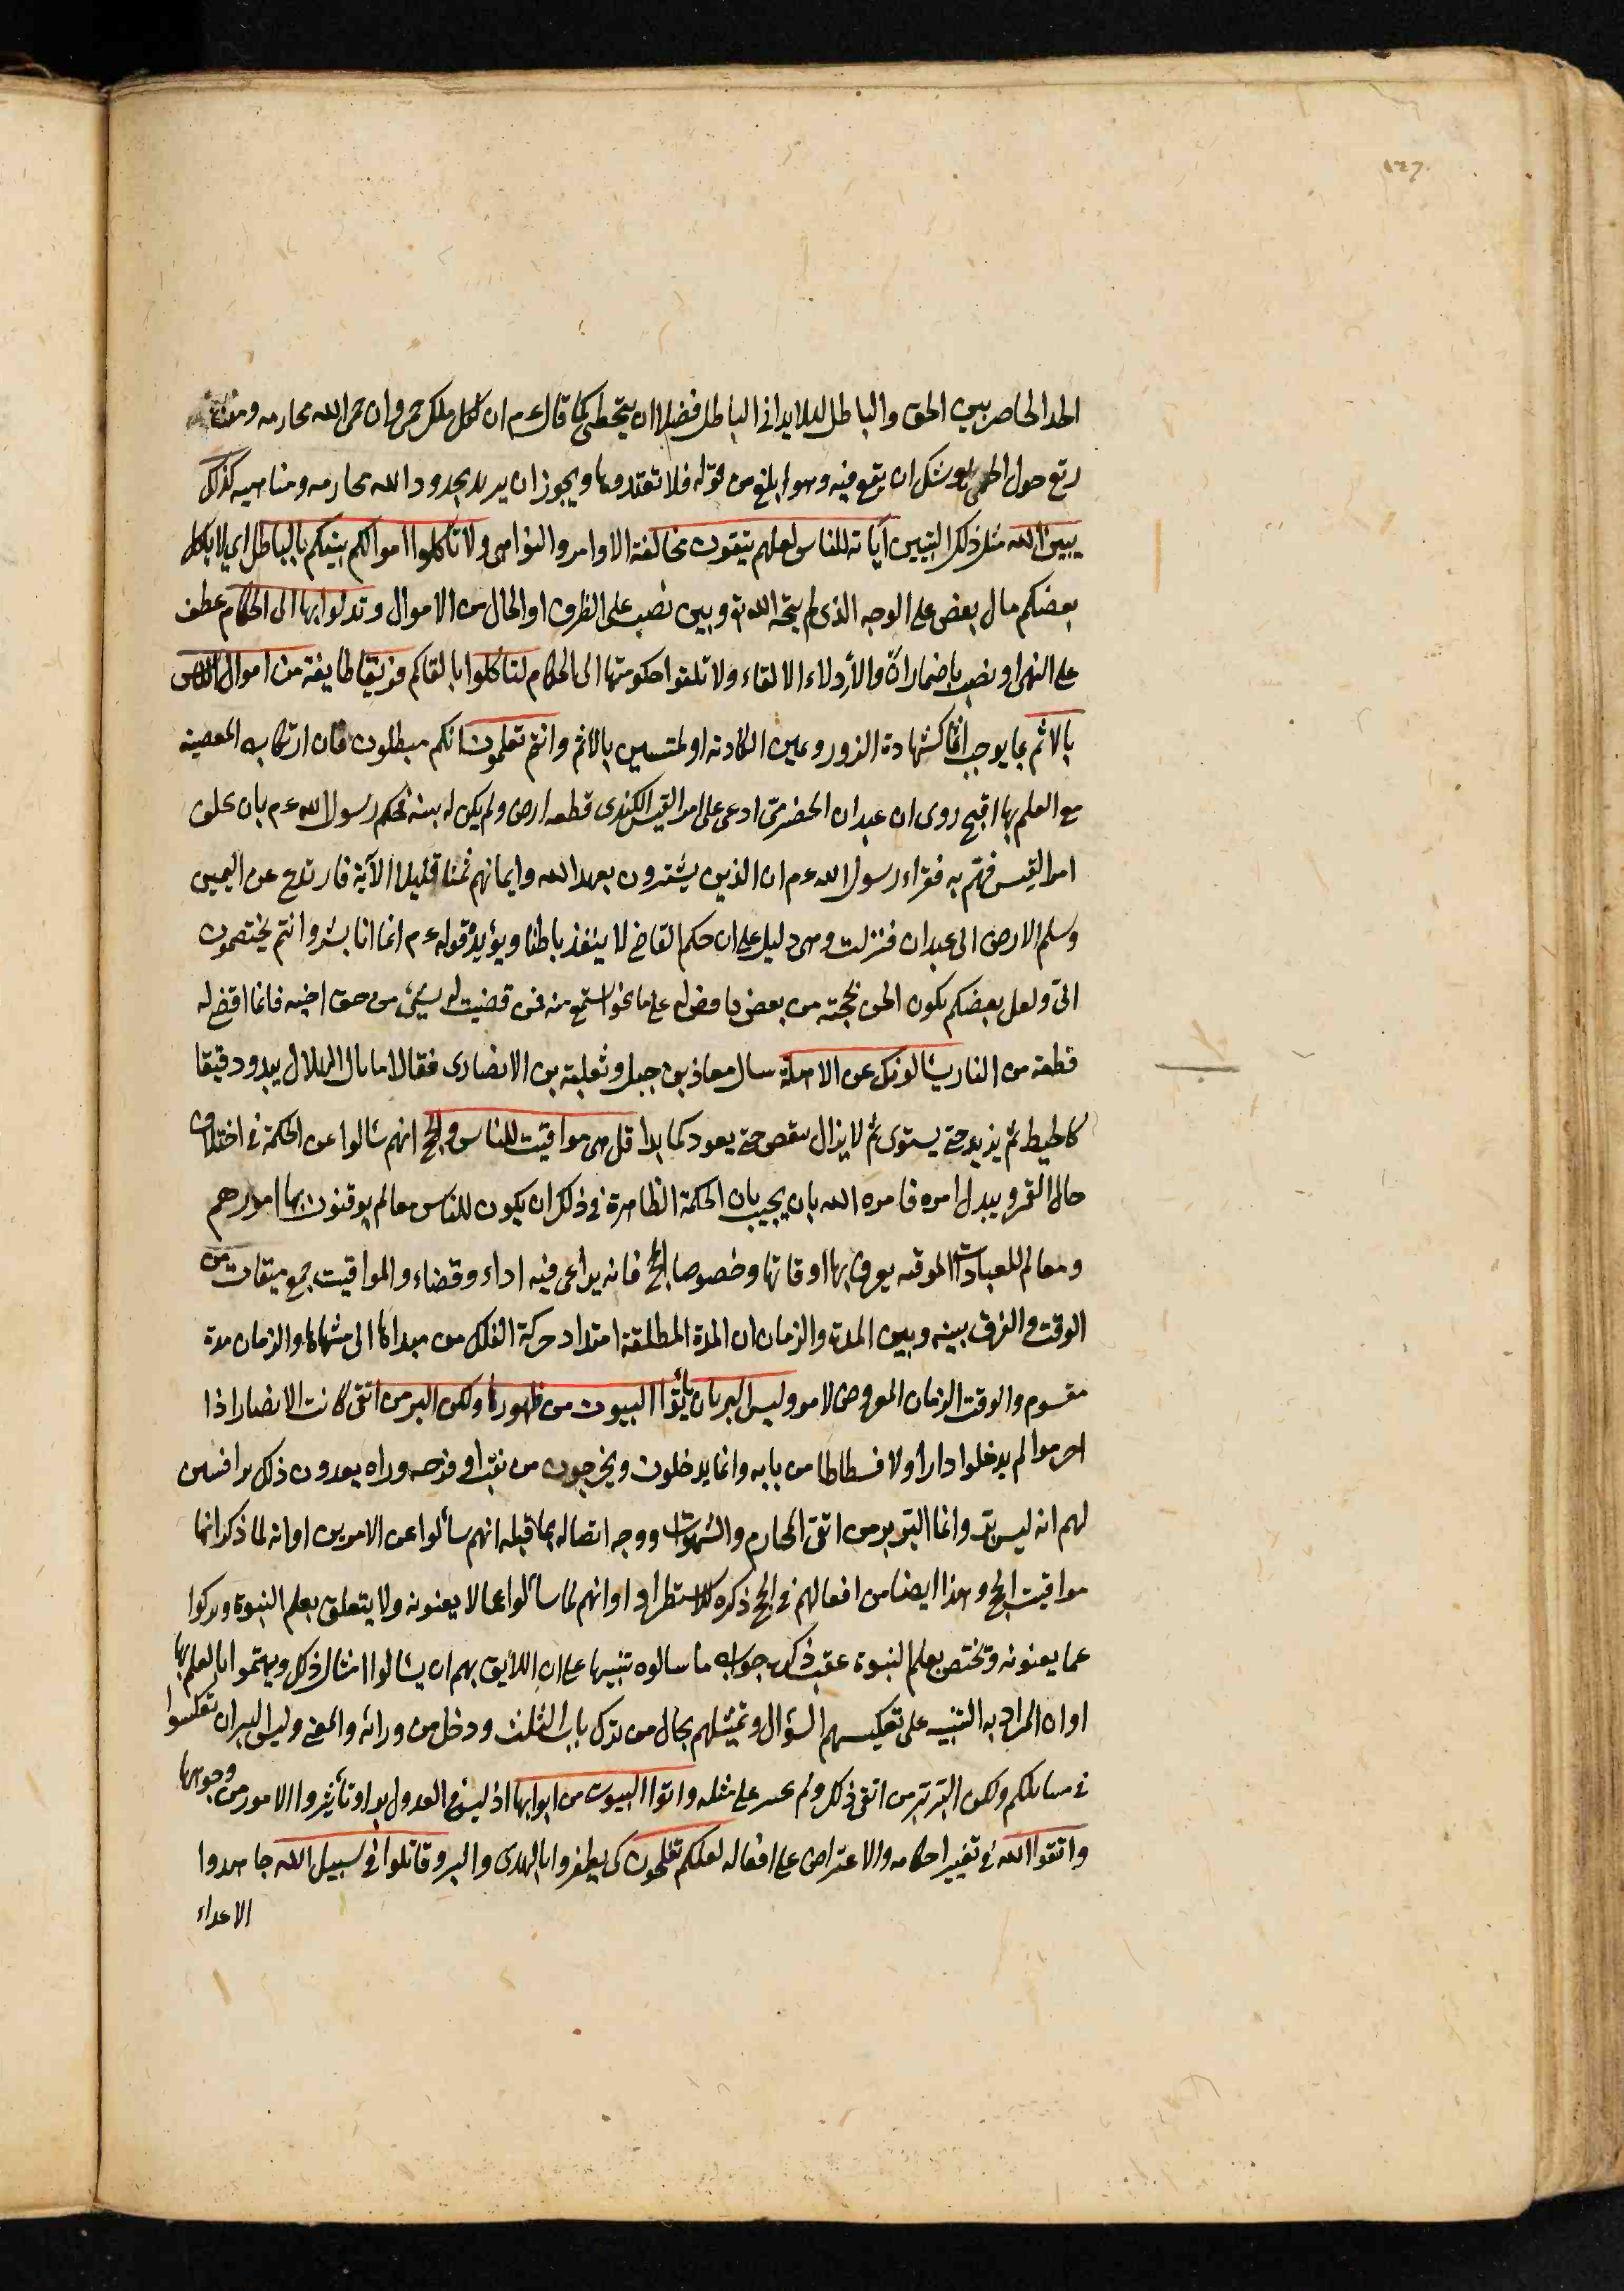 ١٢٦
الحد الحاصر بين الحق والباطل لئلا يدانى الباطل فضلا ان يتخطى كما قال ءم ان لكل ملك حمى وان حمى الله محارمه ومن
رتع حول الحمى يوشك ان يقع فيه وهو ابلغ من قوله فلا تعتدوها ويجوز ان يريد بحدود الله محارمه ومناهيه كذلك
يبين الله مثل ذلك التبيين آياته للناس لعلهم يتقون مخالفة الاوامر والنواهى ولا تأكلوا اموالكم بينكم بالباطل اى لا ياكل
بعضكم مال بعض على الوجه الذى لم يبحه الله تع وبين نصب على الظرف او الحال من الاموال وتدلوا بها الى الحكام عطف
على النهى او نصب باضمار ان والادلاء الالقاء ولا تلقوا حكومتها الى الحكام لتأكلوا بالتقاكم فريقا طايفة من اموال الناس
بالاثم بما يوجب اثما كشهادة الزور ويمين الكاذبة او ملتبسين بالاثم وانتم تعلمون انكم مبطلون فان ارتكاب المعصية
مع العلم بها اقبح روى ان عبدان الحضرمى ادعى على امرا القيس الكندى قطعه ارض ولم يكن له بينه فحكم رسول الله ءم بان يحلف
امرا القيس فهم به فقراء رسول الله ءم ان الذين يشترون بعهد الله وايمانهم ثمنا قليلا الآية فارتدع عن اليمين
وسلم الارض الى عبدان فنزلت وهى دليل على ان حكم القاضى لا ينفذ باطنا ويؤيده قوله ءم انما انا بشر وانتم تختصمون
الىّ ولعل بعضكم يكون الحن بحجته من بعض فاقضى له على ما نحو استمع منه فمن قضيت له بشيئ من حق اخيه فانما اقضى له
قطعة من النار يسالونك عن الاهلة سال معاذ بن جبل وثعلبة بن الانصارى فقالا ما بال الهلال يبدو دقيقا
كالخيط ثم يزيد حتى يستوى ثم لا يزال ينقص حتى يعود كما بدا قل هى مواقيت للناس والحج انهم سالوا عن الحكمة فى اختلاف
حال القمر وتبدل امره فامره الله بان يجيب بان الحكمة الظاهرة فى ذلك ان يكون للناس معالم يوقتون بها امورهم
ومعالم للعبادات الموقته يعرف بها اوقاتها وخصوصا الحج فانه يراعى فيه اداء وقضاء والمواقيت جمع ميقات من
الوقت والفرق بينه وبين المدة والزمان ان المدة المطلقة امتداد حركة الفلك من مبداها الى منتهاها والزمان مدة
مقسوم والوقت الزمان المفروض لامر وليس البر بان تأتوا البيوت من ظهورها ولكن البر من اتقى كانت الانصار اذا
احرموا لم يدخلوا دارا ولا فسطاطا من بابه وانما يدخلون ويخرجون من نقب او فرجه وراه ويعدون ذلك برا فبين
لهم انه ليس ببر وانما البر بر من اتقى المحارم والشهوات ووجه اتصاله بما قبله انهم سألوا عن الامرين او انه لما ذكر انها
مواقيت الحج وهذا ايضا من افعالهم فى الحج ذكره للاستطراد او انهم لما سألوا عما لا يعنونه ولا يتعلق بعلم النبوة وتركوا
عما يعنونه وتختص بعلم النبوة عقب ذكره جواب ما سالوه تنبيها على ان اللايق بهم ان يسالوا امثال ذلك ويهتموا بالعلم بها
او ان المراد به التنبيه على تعكيسهم السؤال وتمثيلهم بحال من ترك باب البيت ودخل من ورائه والمعنى وليس البر ان تعكسوا
فى مسائلكم ولكن البر بر من اتقى ذلك ولم يجسر على مثله واتوا البيوت من ابوابها اذ ليس فى العدول بر او تأشروا الامور من وجوهها
واتقوا الله فى تغيير احكامه والاعتراض على افعاله لعلكم تفلحون كى يظفروا بالهدى والبر وقاتلوا فى سبيل الله جاهدوا
الاعداء